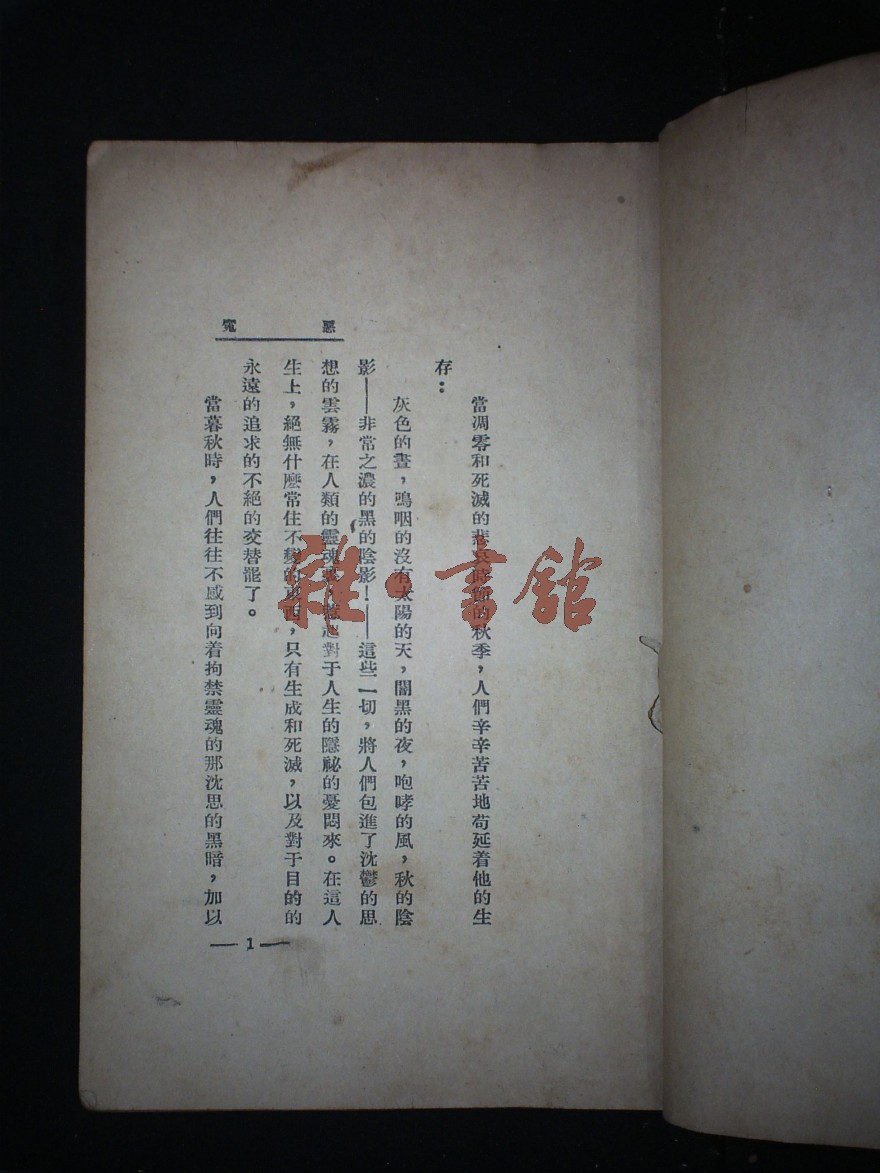 惡魔
當凋零和死滅的悲哀時節的秋季,人們辛辛苦苦地苟延着他的生
存:
灰色的晝,嗚咽的沒有太陽的天,闇黑的夜,咆哮的風,秋的陰
影——非常之濃的黑的陰影!——這些一切,將人們包進了沈鬱的思
想的雲霧,在人類的靈魂裏,惹起對于人生的隱祕的憂悶來。在這人
生上,絕無什麼常住不變的東西,只有生成和死滅,以及對于目的的
永遠的追求的不絕的交替罷了。
當暮秋時,人們往往不感到向着拘禁靈魂的那沈思的黑暗,加以
—1—
雜·書館